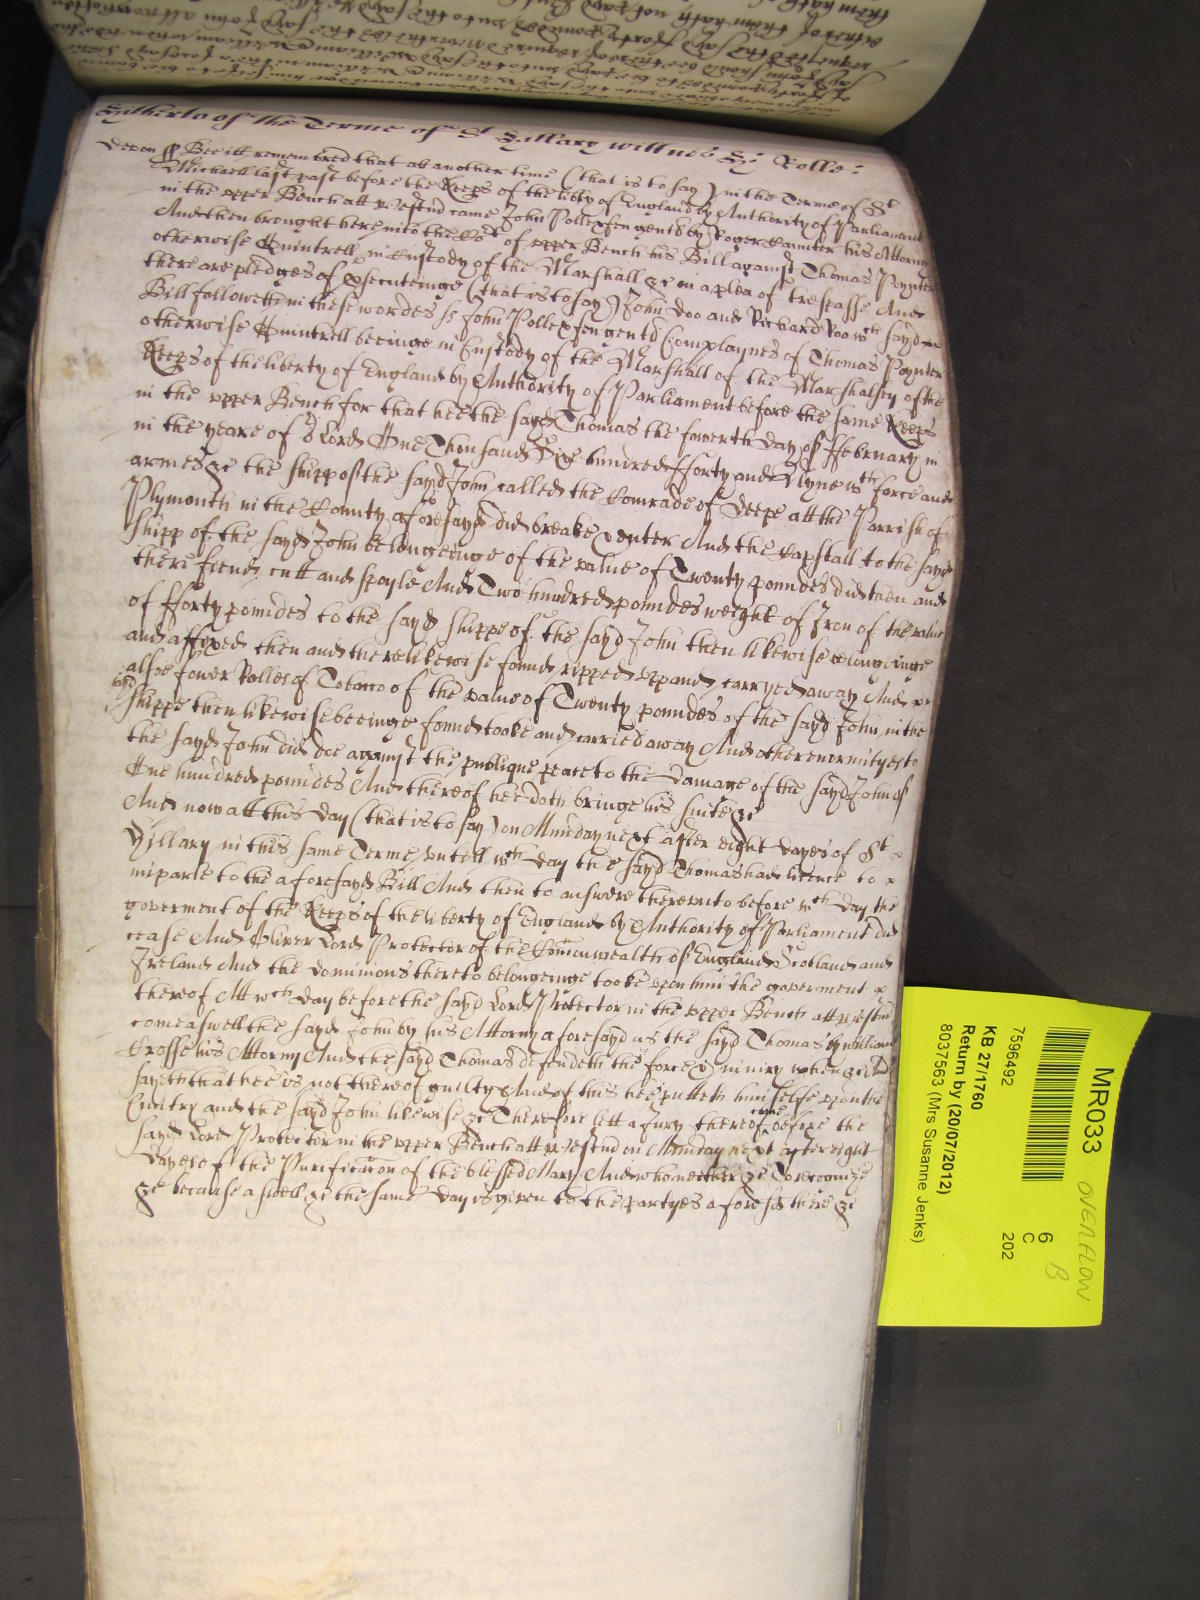 Hitherto of the Terme of St Hillary wittnes Hy: Rolle:
Devon ss Bee itt remembred that att another time (that is to say) in the Terme of St
Michaell last past before the Keeps of the libty of England by Authority of Parliament
in the vpper Bench att Westmd came John Pollexfen gent by Roger his Attorny
And then brought here into the Cot of vpper Bench his Bill against Thomas Poynter
otherwise Quintrell in Custody of the Marshall &c in a plea of trespasse And
there are pledges of psecuteinge (that is to say) John Doo and Richard Roo wch sayd
Bill followeth in these wordes ss John Pollexfen gent Complaynes of Thomas Poynter
otherwise Quintrell beeinge in Custody of the Marshall of the Marshalsey of the
Keeps of the liberty of England by Authority of Parliament before the same Keeps
in the vpper Bench for that hee the sayd Thomas the fowerth day of ffebruary in
in the yeare of or Lord One Thousand Six hundred fforty and Nyne wth force and
armes &c the shipp of the sayd John called the Comrade of Deepe att the Parrish of
Plymouth in the County aforesayd did breake & enter And the Capstall to the sayd
shipp of the sayd John belongeinge of the value of Twenty poundes did then and
there fiend cutt and spoyle And Two hundred poundes weight of Iron of the value
of fforty poundes to the sayd shippe of the sayd John then likewise belongeinge
and affixed then and there likewise found ripped vpp and carryed away And
alsoe fower Rolles of Tobacco of the value of Twenty poundes of the sayd John in the
sayd
shippe then likewise beeinge found tooke and carried away And other enormityes to
the sayd John did doe against the publique peace to the damage of the sayd John of
One hundred poundes And thereof hee doth bringe his suite &c
And now att this day (that is to say) on Munday next after eight dayes of St
Hyllary in this same Terme vntill wch day the sayd Thomas had licence to
imparle to the aforesayd Bill And then to answere therevnto before wch day the
goverment of the Keeps of the liberty of England by Authority of Parliament did
cease And Oliver Lord Protector of the Comonwealth of England Scotland and
Ireland And the dominions thereto belongeinge tooke vpon him the goverment
thereof Att wch day before the sayd Lord Protector in the vpper Bench att Westmd
come aswell the sayd John by his Attorny aforesayd as the sayd Thomas by William
Crosse his Attorny And the sayd Thomas defendeth the force & iniury when &c And
sayeth that hee is not thereof guilty And of this hee putteth himselfe vpon the
Cuntry and the sayd John likewise &c Therefore lett a Jury thereof come before the
sayd Lord Protector in the vpper Bench att Westmd on Munday next after eight
dayes of the Purificacon of the blessed Mary And who neither &c To recognize
&c because aswell &c the same day is given to the partyes aforesd there &c
MR033
OVERFLOW
B
7596492
6
C
202
KB 27/1760
Return by (20/07/2012)
8037563 (Mrs Susanne Jenks)